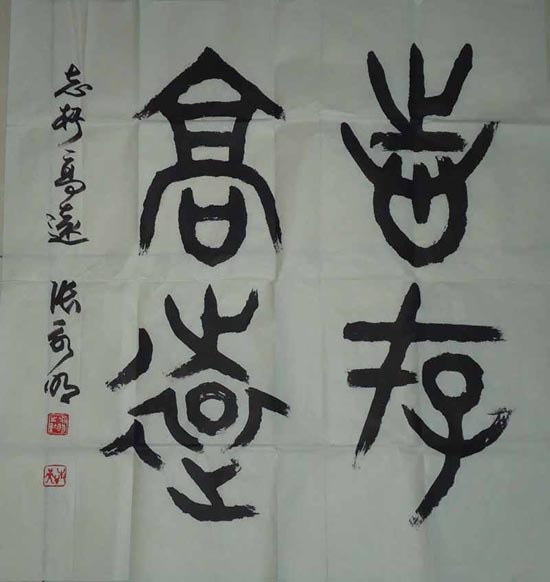 志存
高遠
志存高遠